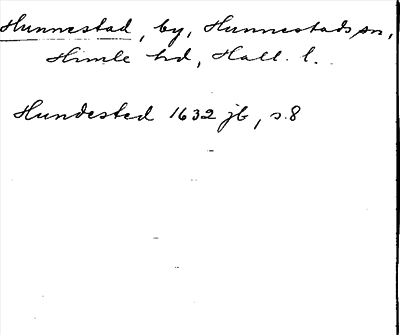 Hunnestad, by, Hunnestads sn,
Himle hd, Hall. l.
Hundested 1632 jb, s. 8